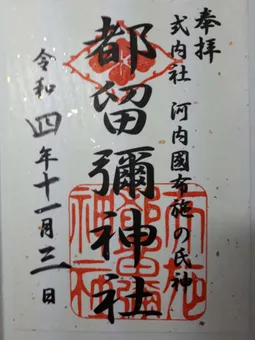 奉拝
式内社 河内國布施の氏神
都留彌神社
令和四年十一月三日